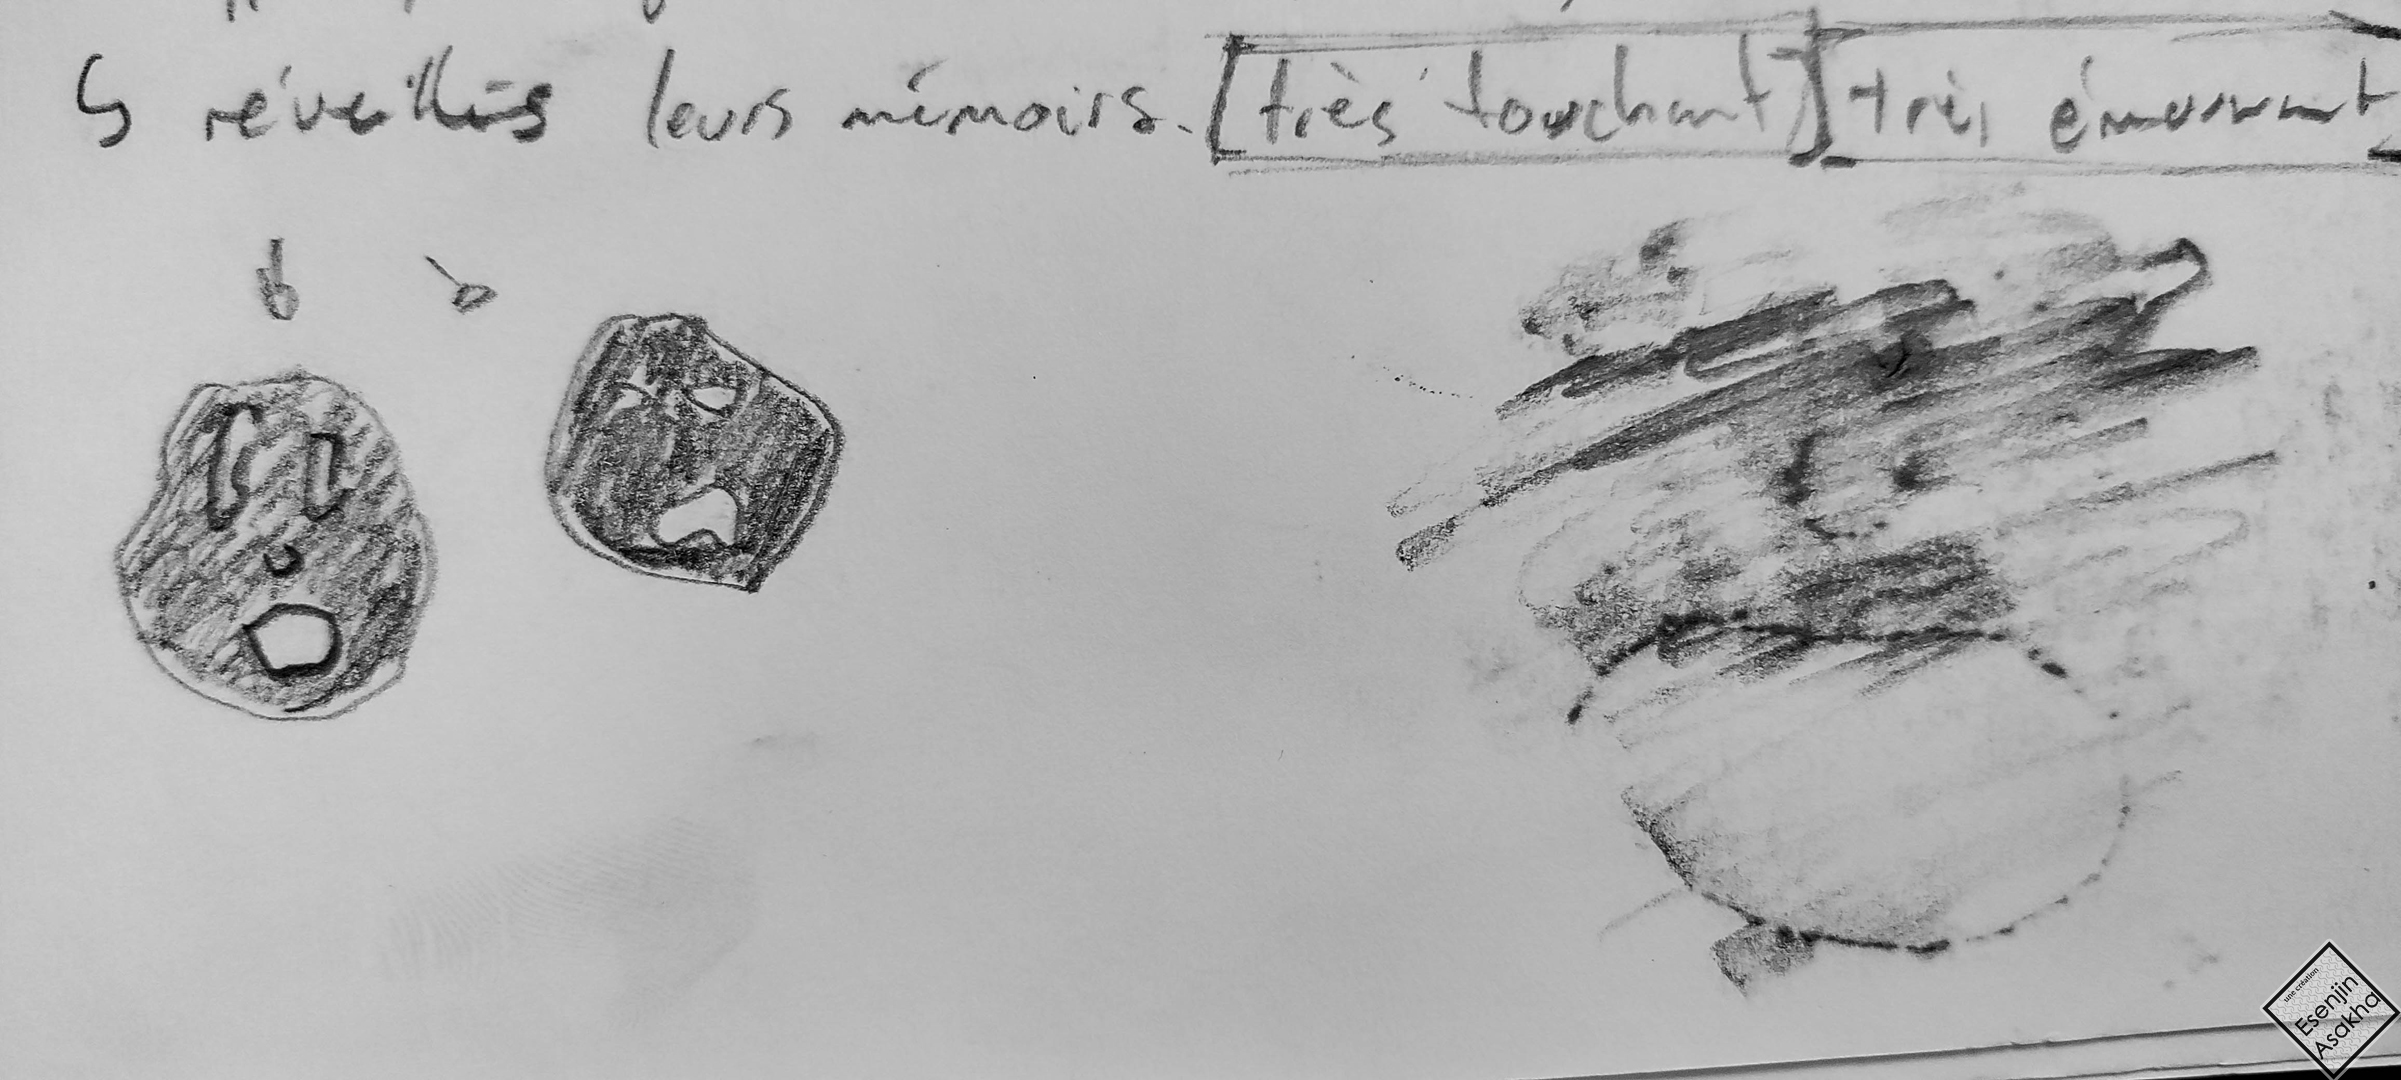 ↳ réveillés leurs mémoirs. [très touchant] [très émouvant]
une création
Esenjin
Asakha